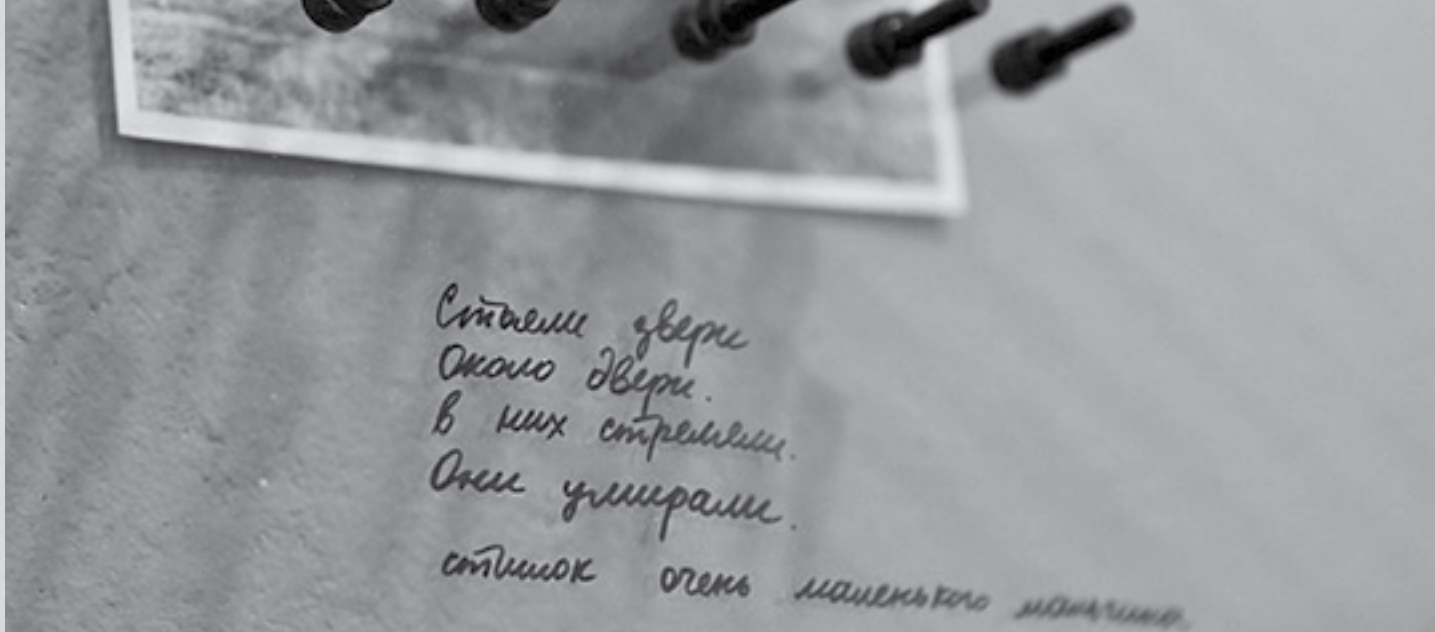 Стояли звери
Около двери.
В них стреляли.
Они умирали.
стишок очень маленького мальчика